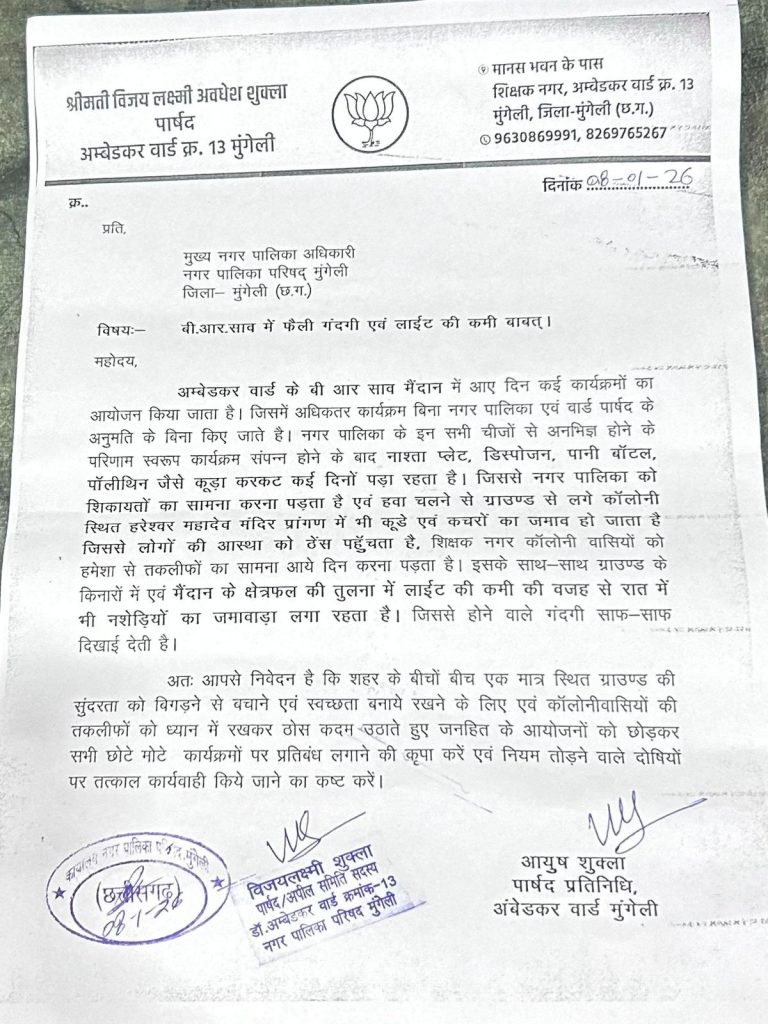 श्रीमती विजय लक्ष्मी अवधेश शुक्ला
पार्षद
अम्बेडकर वार्ड क्र. 13 मुंगेली
मानस भवन के पास
शिक्षक नगर, अम्बेडकर वार्ड क्र. 13
मुंगेली, जिला-मुंगेली (छ.ग.)
9630869991, 8269765267
दिनांक 08-01-26
क्र..
प्रति,
मुख्य नगर पालिका अधिकारी
नगर पालिका परिषद् मुंगेली
जिला– मुंगेली (छ.ग.)
विषयः– बी.आर.साव में फैली गंदगी एवं लाईट की कमी बाबत्।
महोदय,
अम्बेडकर वार्ड के बी आर साव मैंदान में आए दिन कई कार्यक्रमों का
आयोजन किया जाता है। जिसमें अधिकतर कार्यक्रम बिना नगर पालिका एवं वार्ड पार्षद के
अनुमति के बिना किए जाते है। नगर पालिका के इन सभी चीजों से अनभिज्ञ होने के
परिणाम स्वरूप कार्यक्रम संपन्न होने के बाद नाश्ता प्लेट, डिस्पोजन, पानी बॉटल,
पॉलीथिन जैसे कूड़ा करकट कई दिनों पड़ा रहता है। जिससे नगर पालिका को
शिकायतों का सामना करना पड़ता है एवं हवा चलने से ग्राउण्ड से लगे कॉलोनी
स्थित हरेश्वर महादेव मंदिर प्रांगण में भी कूडे एवं कचरों का जमाव हो जाता है
जिससे लोगों की आस्था को ठेंस पहुँचता है, शिक्षक नगर कॉलोनी वासियों को
हमेशा से तकलीफों का सामना आये दिन करना पड़ता है। इसके साथ–साथ ग्राउण्ड के
किनारों में एवं मैंदान के क्षेत्रफल की तुलना में लाईट की कमी की वजह से रात में
भी नशेड़ियों का जमावाड़ा लगा रहता है। जिससे होने वाले गंदगी साफ–साफ
दिखाई देती है।
अतः आपसे निवेदन है कि शहर के बीचों बीच एक मात्र स्थित ग्राउण्ड की
सुंदरता को बिगड़ने से बचाने एवं स्वच्छता बनाये रखने के लिए एवं कॉलोनीवासियों की
तकलीफों को ध्यान में रखकर ठोस कदम उठाते हुए जनहित के आयोजनों को छोड़कर
सभी छोटे मोटे कार्यक्रमों पर प्रतिबंध लगाने की कृपा करें एवं नियम तोड़ने वाले दोषियों
पर तत्काल कार्यवाही किये जाने का कष्ट करें।
कार्यालय नगर पालिका परिषद, मुंगेली
(छत्तीसगढ़)
08-1-26
विजयलक्ष्मी शुक्ला
पार्षद/अपील समिति सदस्य
डॉ.अम्बेडकर वार्ड क्रमांक-13
नगर पालिका परिषद मुंगेली
आयुष शुक्ला
पार्षद प्रतिनिधि,
अंबेडकर वार्ड मुंगेली